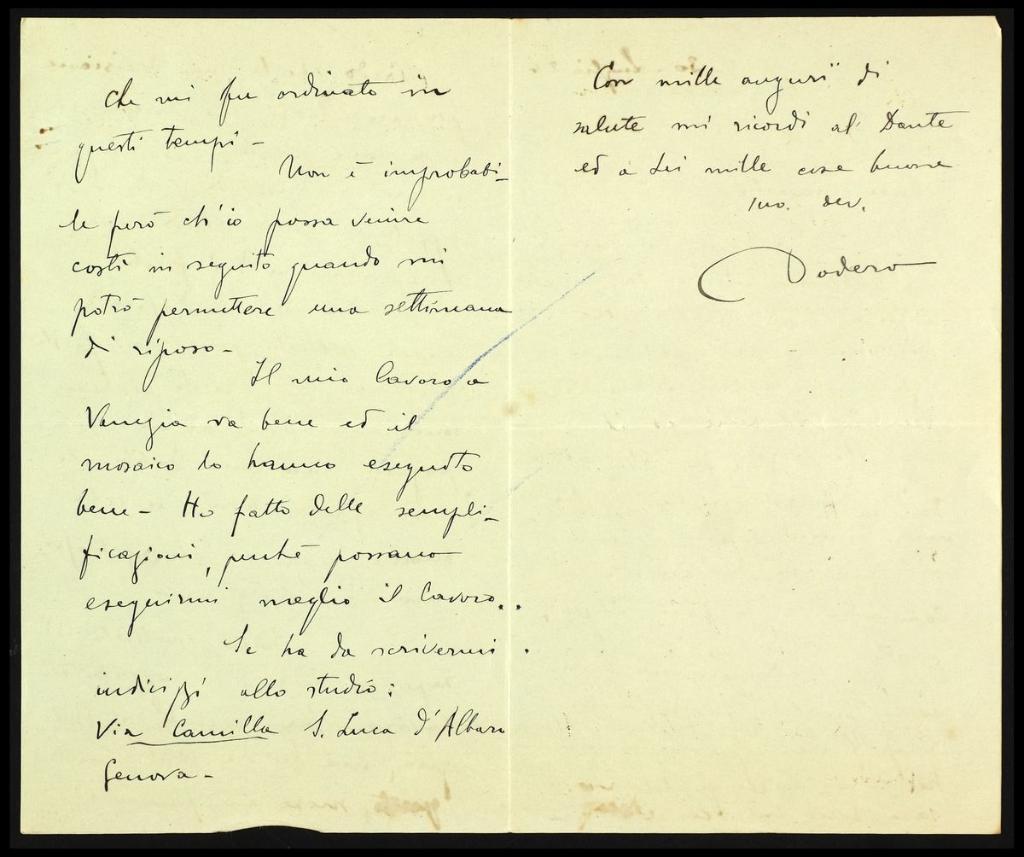 che mi fu ordinato in
questi tempi -
Non è improbabi-
le però ch'io possa venire
costì in seguito quando mi
potrò permettere una settimana
di riposo -
Il mio lavoro a
Venezia va bene ed il
mosaico lo hanno eseguito
bene - Ho fatto delle sempli-
ficazioni, perché possano
eseguirmi meglio il lavoro..
Se ha da scrivermi
indirizzi allo studio:
Via Camilla S. Luca d'Albaro
Genova -
Con mille augurii di
salute mi ricordi al Dante
ed a Lei mille cose buone
suo. dev.
Dodero